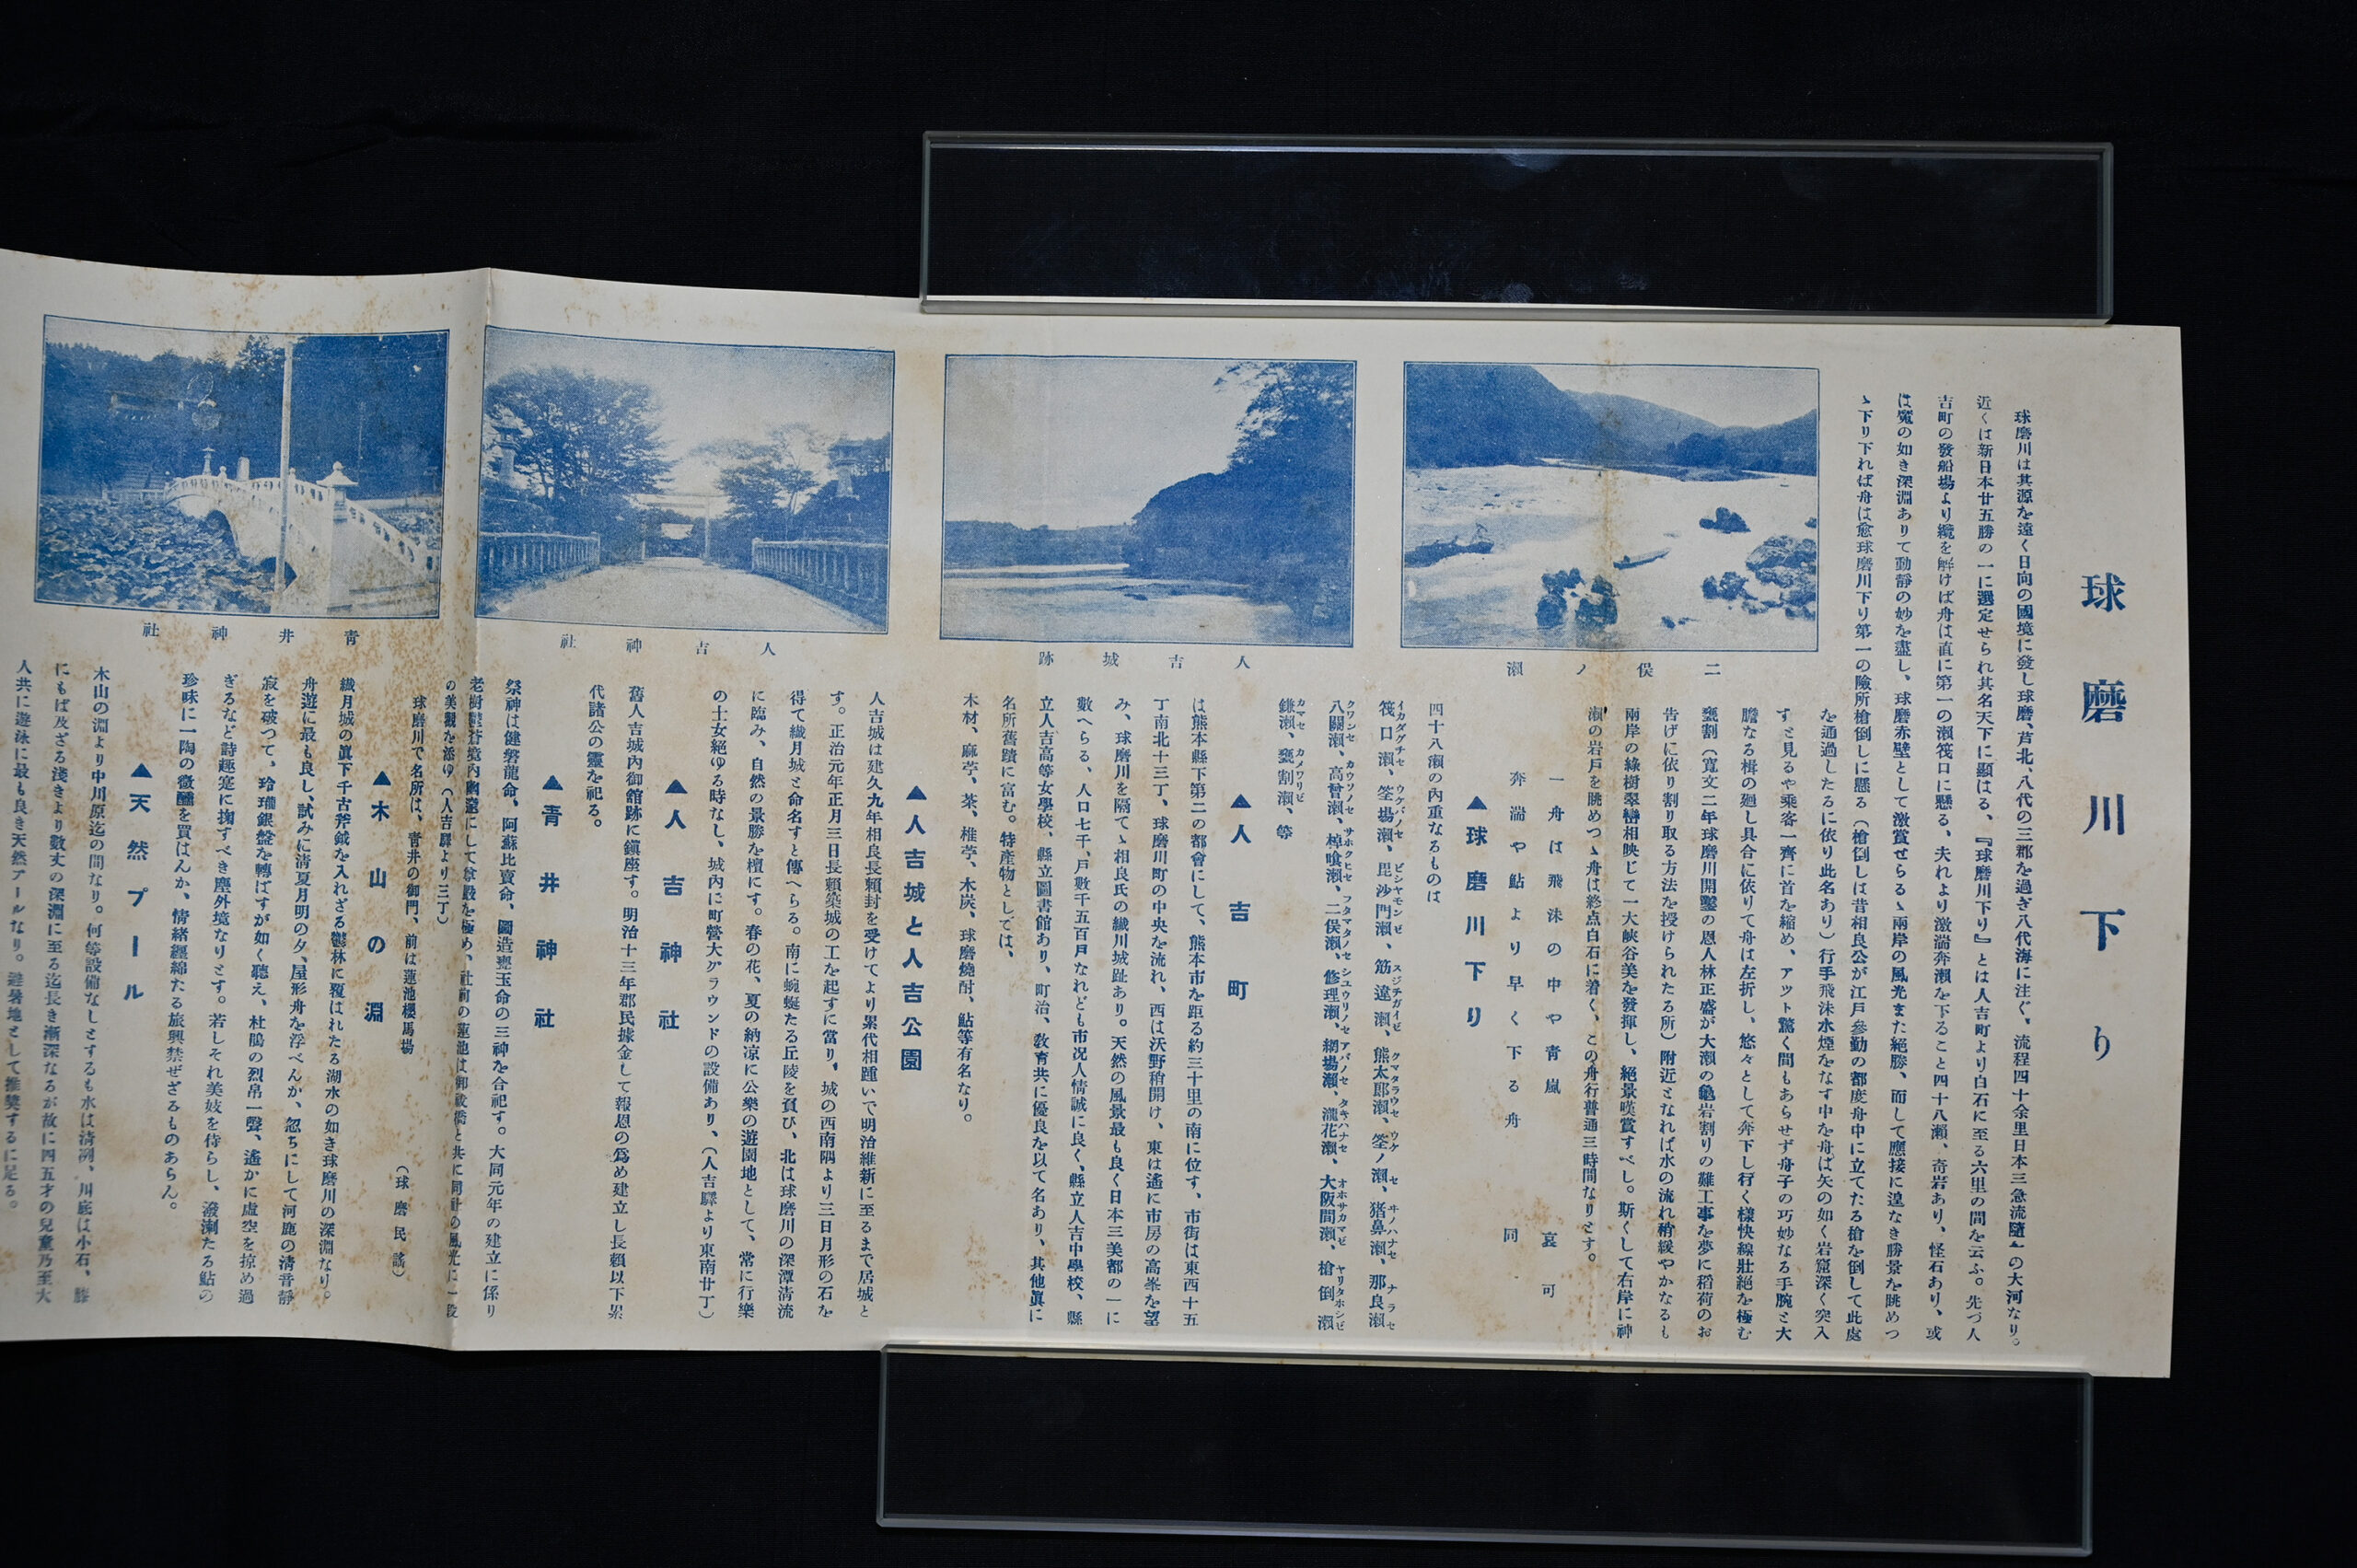 球磨川下り
球磨川は其源を遠く日向の國境に發し球磨、芦北、八代の三郡を過ぎ八代海に注ぐ、流程四十余里日本三急流隨一の大河なり。
近くは新日本廿五勝の一に選定せられ其名天下に顯はる、『球磨川下り』とは人吉町より白石に至る六里の間を云ふ。先づ人
吉町の發船場より纜を解けば舟は直に第一の瀬筏口に懸る、夫れより激湍奔瀬を下ること四十八瀬、奇岩あり、怪石あり、或
は魔の如き深淵ありて動靜の妙を盡し、球磨赤壁として激賞せらるゝ兩岸の風光また絕勝、而して應接に遑なき勝景を眺めつ
ゝ下り下れば舟は愈球磨川下り第一の險所槍倒しに懸る（槍倒しは昔相良公が江戸參勤の都度舟中に立てたる槍を倒して此處
を通過したるに依り此名あり）行手飛沫水煙をなす中を舟は矢の如く岩窟深く突入
すと見るや乘客一齊に首を縮め、アツト驚く間もあらせず舟子の巧妙なる手腕と大
膽なる楫の廻し具合に依りて舟は左折し、悠々として奔下し行く樣快線壯絕を極む
甕割（寬文二年球磨川開鑿の恩人林正盛が大瀬の龜岩割りの難工事を夢に稻荷のお
告げに依り割り取る方法を授けられたる所）附近となれば水の流れ稍緩やかなるも
兩岸の綠樹翠巒相映じて一大峽谷美を發揮し、絕景嘆賞すべし。斯くして右岸に神
瀬の岩戸を眺めつゝ舟は終点白石に着く、この舟行普通三時間なりとす。
一舟は飛沫の中や靑嵐　哀可
奔湍や鮎より早く下る舟　同
▲球磨川下り
四十八瀬の內重なるものは
筏口瀬、筌場瀬、毘沙門瀬、筋違瀬、熊太郎瀬、筌ノ瀬、猪鼻瀬、那良瀬
イカダグチセ　ウケバノセ　ビシヤモンゼ　スジチガイゼ　クマタラウセ　ウケノセ　ヰノハナセ　ナラセ
八關瀬、高曾瀬、棹喰瀬、二俣瀬、修理瀬、網場瀬、瀧花瀬、大阪間瀬、槍倒瀬
クワンセ　カウソノセ　サホクヒセ　フタマタノセ　シユウリノセ　アバノセ　タキハナセ　オホサカマゼ　ヤリタホシゼ
鎌瀬、甕割瀬、等
カマセ　カメワリゼ
▲人吉町
は熊本縣下第二の都會にして、熊本市を距る約三十里の南に位す、市街は東西十五
丁南北十三丁、球磨川町の中央を流れ、西は沃野稍開け、東は遙に市房の高峯を望
み、球磨川を隔てゝ相良氏の織川城趾あり。天然の風景最も良く日本三美都の一に
數へらる、人口七千、戸數千五百戸なれども市況人情誠に良く、縣立人吉中學校、縣
立人吉高等女學校、縣立圖書館あり、町治、敎育共に優良を以て名あり、其他眞に
名所舊蹟に富む。特產物としては、
木材、麻苧、茶、椎茸、木炭、球磨燒酎、鮎等有名なり。
▲人吉城と人吉公園
人吉城は建久九年相良長賴封を受けてより累代相踵いで明治維新に至るまで居城と
す。正治元年正月三日長賴築城の工を起すに當り、城の西南隅より三日月形の石を
得て繊月城と命名すと傳へらる。南に蜿蜒たる丘陵を負び、北は球磨川の深潭淸流
に臨み、自然の景勝を檀にす。春の花、夏の納凉に公樂の遊園地として、常に行樂
の士女絕ゆる時なし、城內に町營大グラウンドの設備あり、（人吉驛より東南廿丁）
▲人吉神社
舊人吉城內御舘跡に鎭座す。明治十三年郡民據金して報恩の爲め建立し長賴以下累
代諸公の靈を祀る。
▲靑井神社
祭神は健磐龍命、阿蘇比賣命、國造速甕玉命の三神を合祀す。大同元年の建立に係り
老樹鬱蒼境內幽邃にして
の美觀を添ゆ（人吉驛より三丁）
球磨川で名所は、靑井の御門、前は蓮池櫻馬場　（球磨民謠）
▲木山の淵
繊月城の眞下千古斧鉞を入れざる鬱林に覆はれたる湖水の如き球磨川の深淵なり。
舟遊に最も良し、試みに淸夏月明の夕、屋形舟を浮べんか、忽ちにして河鹿の淸音靜
寂を破つて、玲瓏銀盤を轉ばすが如く聽え、杜鵑の烈帛一聲、遙かに虛空を掠め過
ぎるなど詩趣寔に掬すべき塵外境なりとす。若しそれ美妓を侍らし、潑溂たる鮎の
珍味に一陶の微醺を買はんか、情緖纒綿たる旅興禁ぜざるものあらん。
▲天然プール
木山の淵より中川原迄の間なり。何等設備なしとするも水は淸冽、川底は小石、膝
にもば及ざる淺きより數丈の深淵に至る迄長き漸深なるが故に四五才の兒童乃至大
人共に遊泳に最も良き天然プールなり。避暑地として推奬するに足る。
二俣ノ瀬
人吉城跡
人吉神社
靑井神社